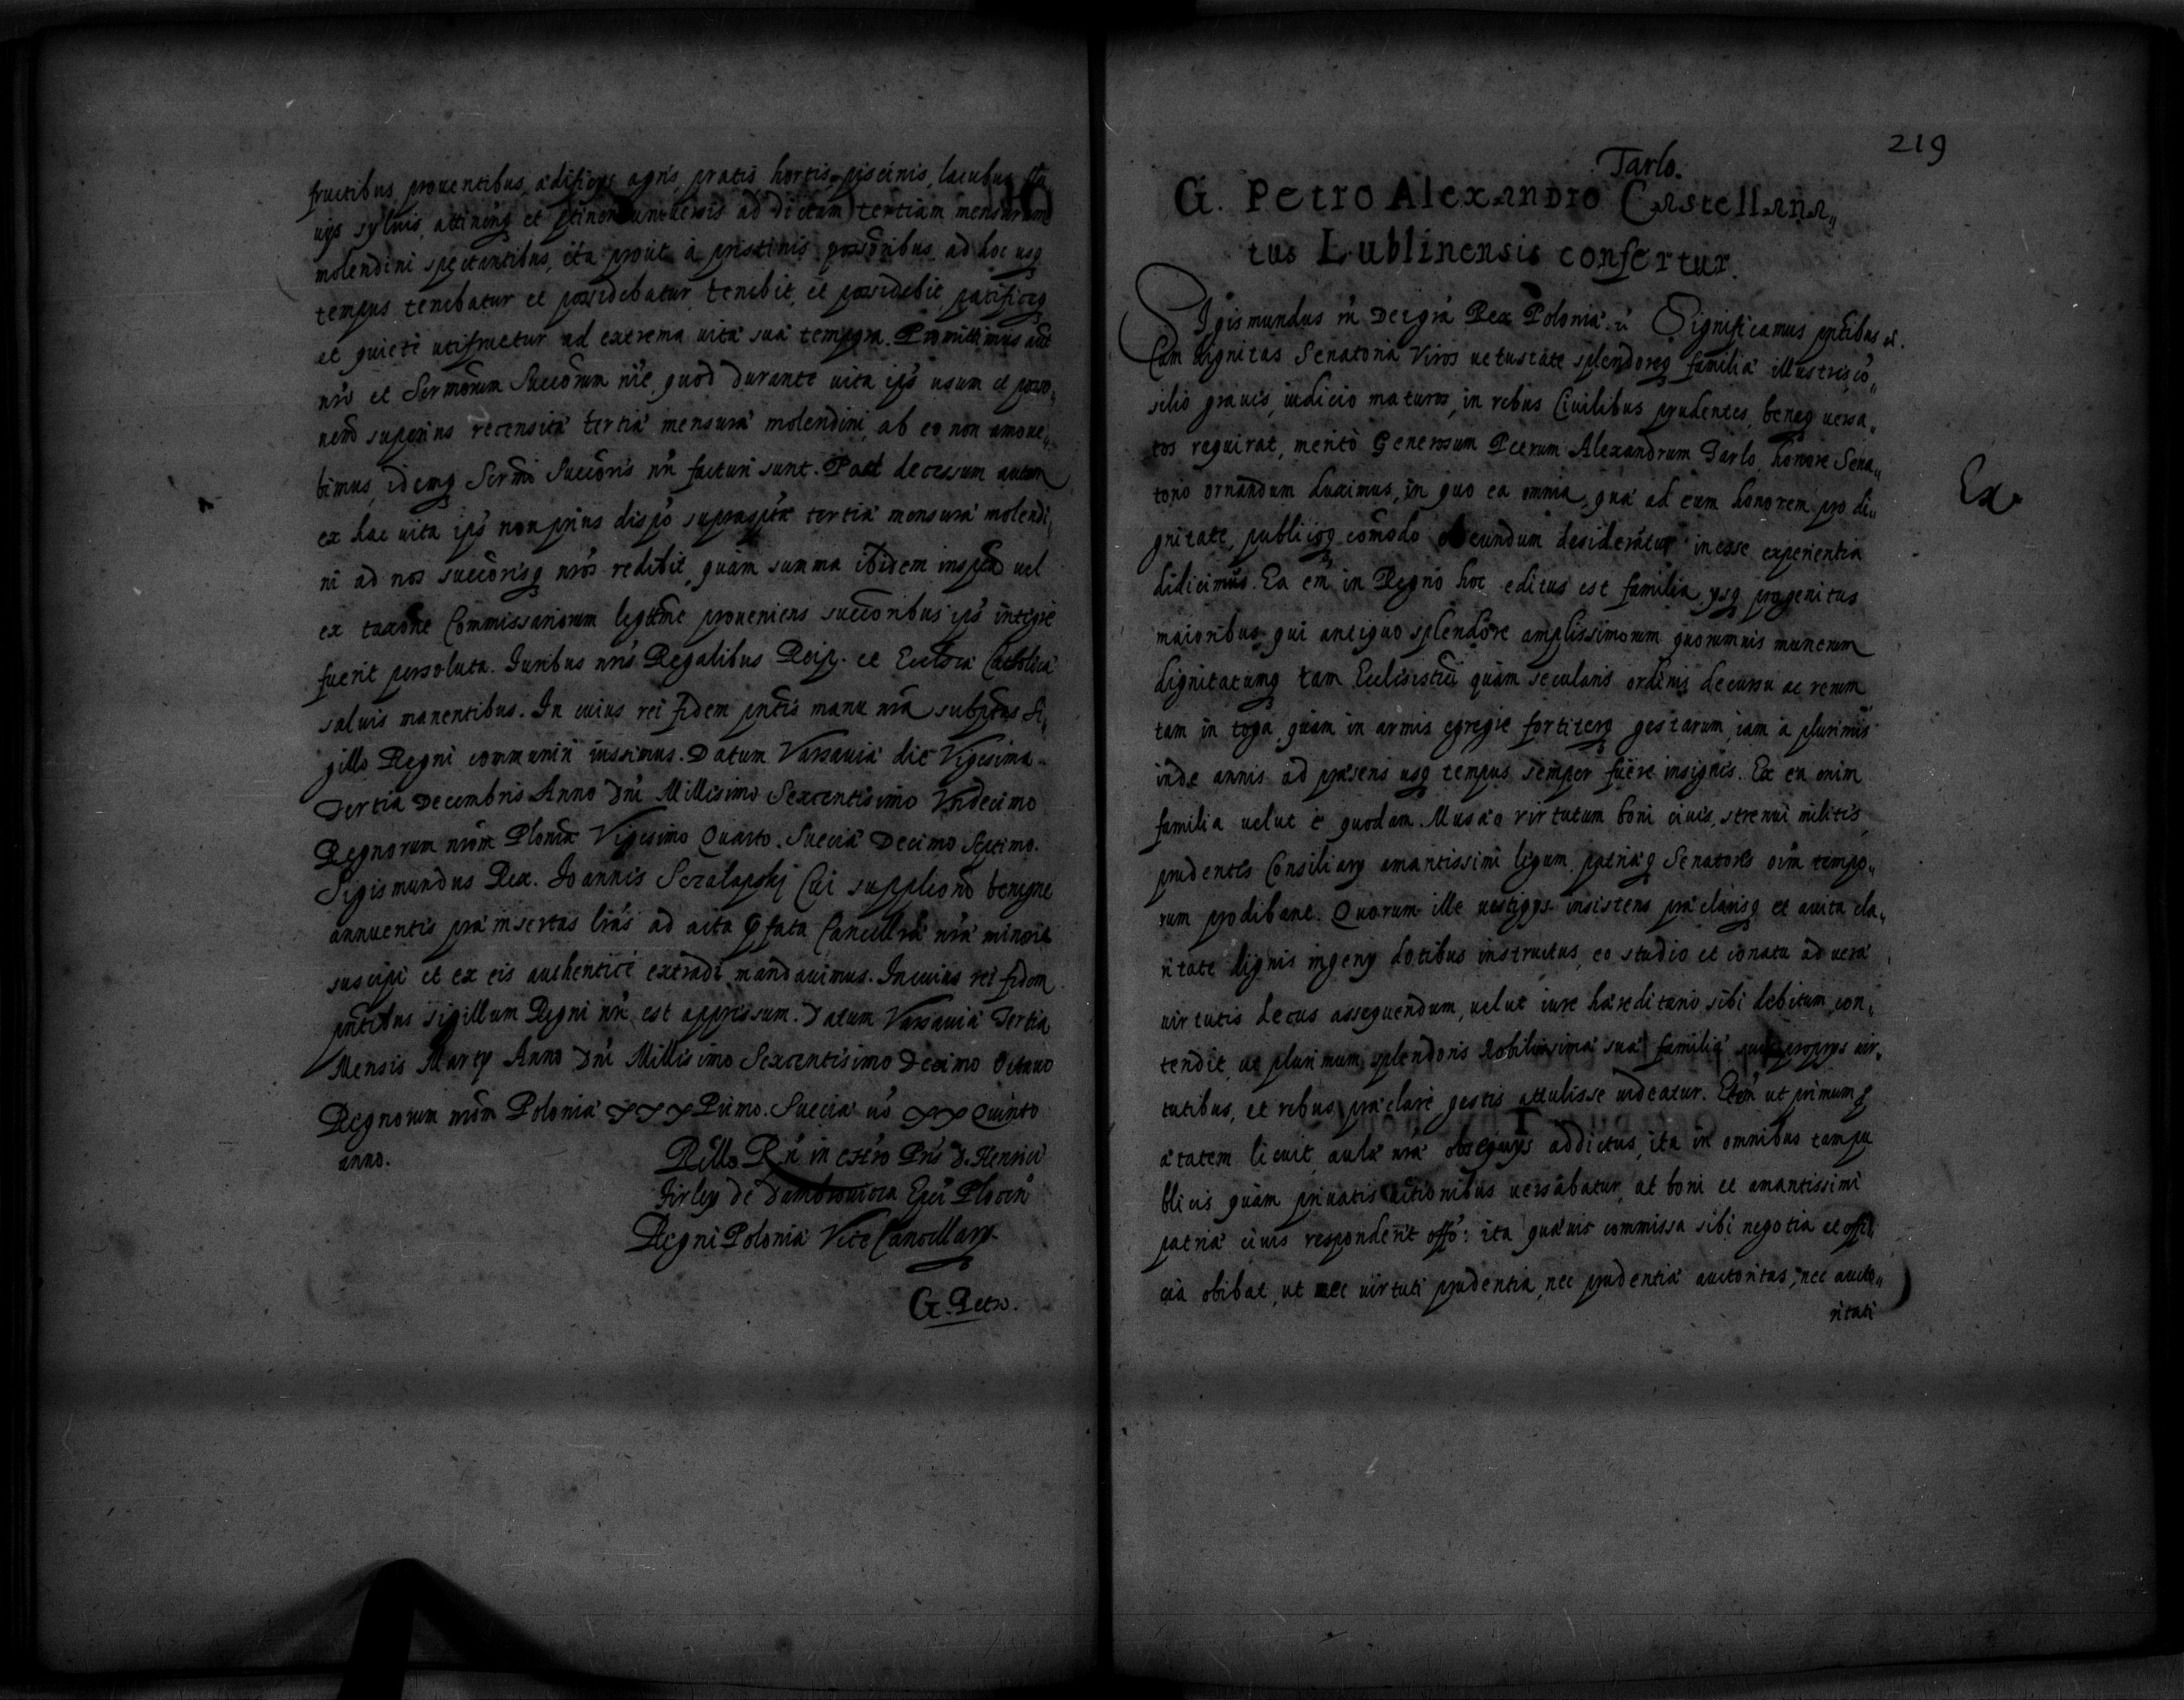 fructibus, prouentibus, ædificijs agris, pratis hortis, piscinis, lacubus, flu
uijs syluis, attinenq et ptinen vniuersis ad dictam tertiam mensuram
molendini spectantibus, ita prout à pristinis possoribus ad hoc usq
tempus tenebatur et possidebatur, tenebit, et possidebit, pacificeq
et quietè utifruetur ad extrema uitæ suæ tempora. Promittimus aút
nro et Sermorum Succorum nre, quod durante uita ips usum et posso,,
nem superius recensitæ tertiæ mensuræ molendini, ab eo non amoue,,
bimus, idemq Sermi Succoris nri facturi sunt. Post decessum autem
ex hac uita ips non prius disp suprascptæ tertiæ mensuræ molendi,,
ni ad nos succorisq nros redibit, quàm summa ibidem inspta uel
ex taxone Commissariorum legitme proueniens succoribus ips integrè
fuerit persoluta. Iuribus nris Regalibus Reip. et Ecclsiæ Catholicæ
saluis manentibus. In cuius rei fidem pntis manu nra subptas Si,,
gillo Regni communiri iussimus. Datum Varsauiæ die Vigesima
Tertia Decembris Anno Dni Millesimo Sexcentesimo Vndecimo
Regnorum nrom Plonia Vigesimo Quarto. Sueciæ Decimo Septimo.
Sigismundus Rex. Ioannis Sczalapskj Cui supplicno benigne
annuentis præinsertas lrás ad acta pfata Cancellriæ nræ minoris
suscipi et ex eis authenticè extradi mandauimus. In cuius rei fidem
pntibus sigillum Regni nri est appressum. Datum Varsauiæ Tertia
Mensis Martij Anno Dni Millesimo Sexcentesimo Decimo Octauo
Regnorum nrom Poloniæ XXX Primo. Sueciæ uo XX Quinto
anno.
Rello R in Chro Pris D. Henrici
Firley de Dambrowica Epi Plocen
Regni Poloniæ Vice Cancellarij.
G. Petro.
219
Tarlo.
G. Petro Alexandro Castellana,,
tus Lublinensis confertur.
Sigismundus iii Dei grá Rex Poloniæ. Significamus pntibus
Cum dignitas Senatoria Viros uetustate splendoreq familiæ illustres, co,,
silio graues, iudicio maturos, in rebus Ciuilibus prudentes, beneq uersa,,
tos requirat, meritò Generosum Petrum Alexandrum Tarlo, honore Sena,,
torio ornandum duximus, in quo ea omnia, quæ ad eum honorem pro di,,
gnitate, publicoq cómodo obeundum desiderátur inesse experientia
didicimus. Ea em in Regno hoc editus est familia, ijsq progenitus
maioribus, qui antiquo splendore amplissimorum quorumuis munerum
dignitatumq tam Ecclesistici quàm secularis ordinis decursu ac rerum
tam in toga quàm in armis egregie fortiterq gestarum, iam à plurimis
inde annis ad præsens usq tempus semper fuére insignes. Ex ea enim
familia uelut è quodam Musæo virtutum boni ciuis, strenui militis,
prudentes Consiliarij amantissimi legum patriæq Senatores oím tempo,,
rum prodibant. Quorum ille uestigijs insistens præclarisq et auita cla,,
ritate dignis ingenij dotibus instructus, eo studio et conatu ad ueræ
uirtutis decus assequendum, uelut iure hæreditario sibi debitum, con,,
tendit, ut plurimum splendoris Nobilissimæ suæ familiæ suis proprijs uir,,
tutibus, et rebus præclarè gestis attulisse uideatur. Etem ut primum p
ætatem licuit, aulæ nræ obsequijs addictus, ita in omnibus tam pu
blicis quàm priuatis actionibus uersábatur, ut boni et amantissimi
patriæ ciuis responderit offo: ita quæuis commissa sibi negotia et offi,,
cia obibat, ut nec uirtuti prudentia, nec prudentiæ auctoritas, nec aucto,,
ritati
Ex